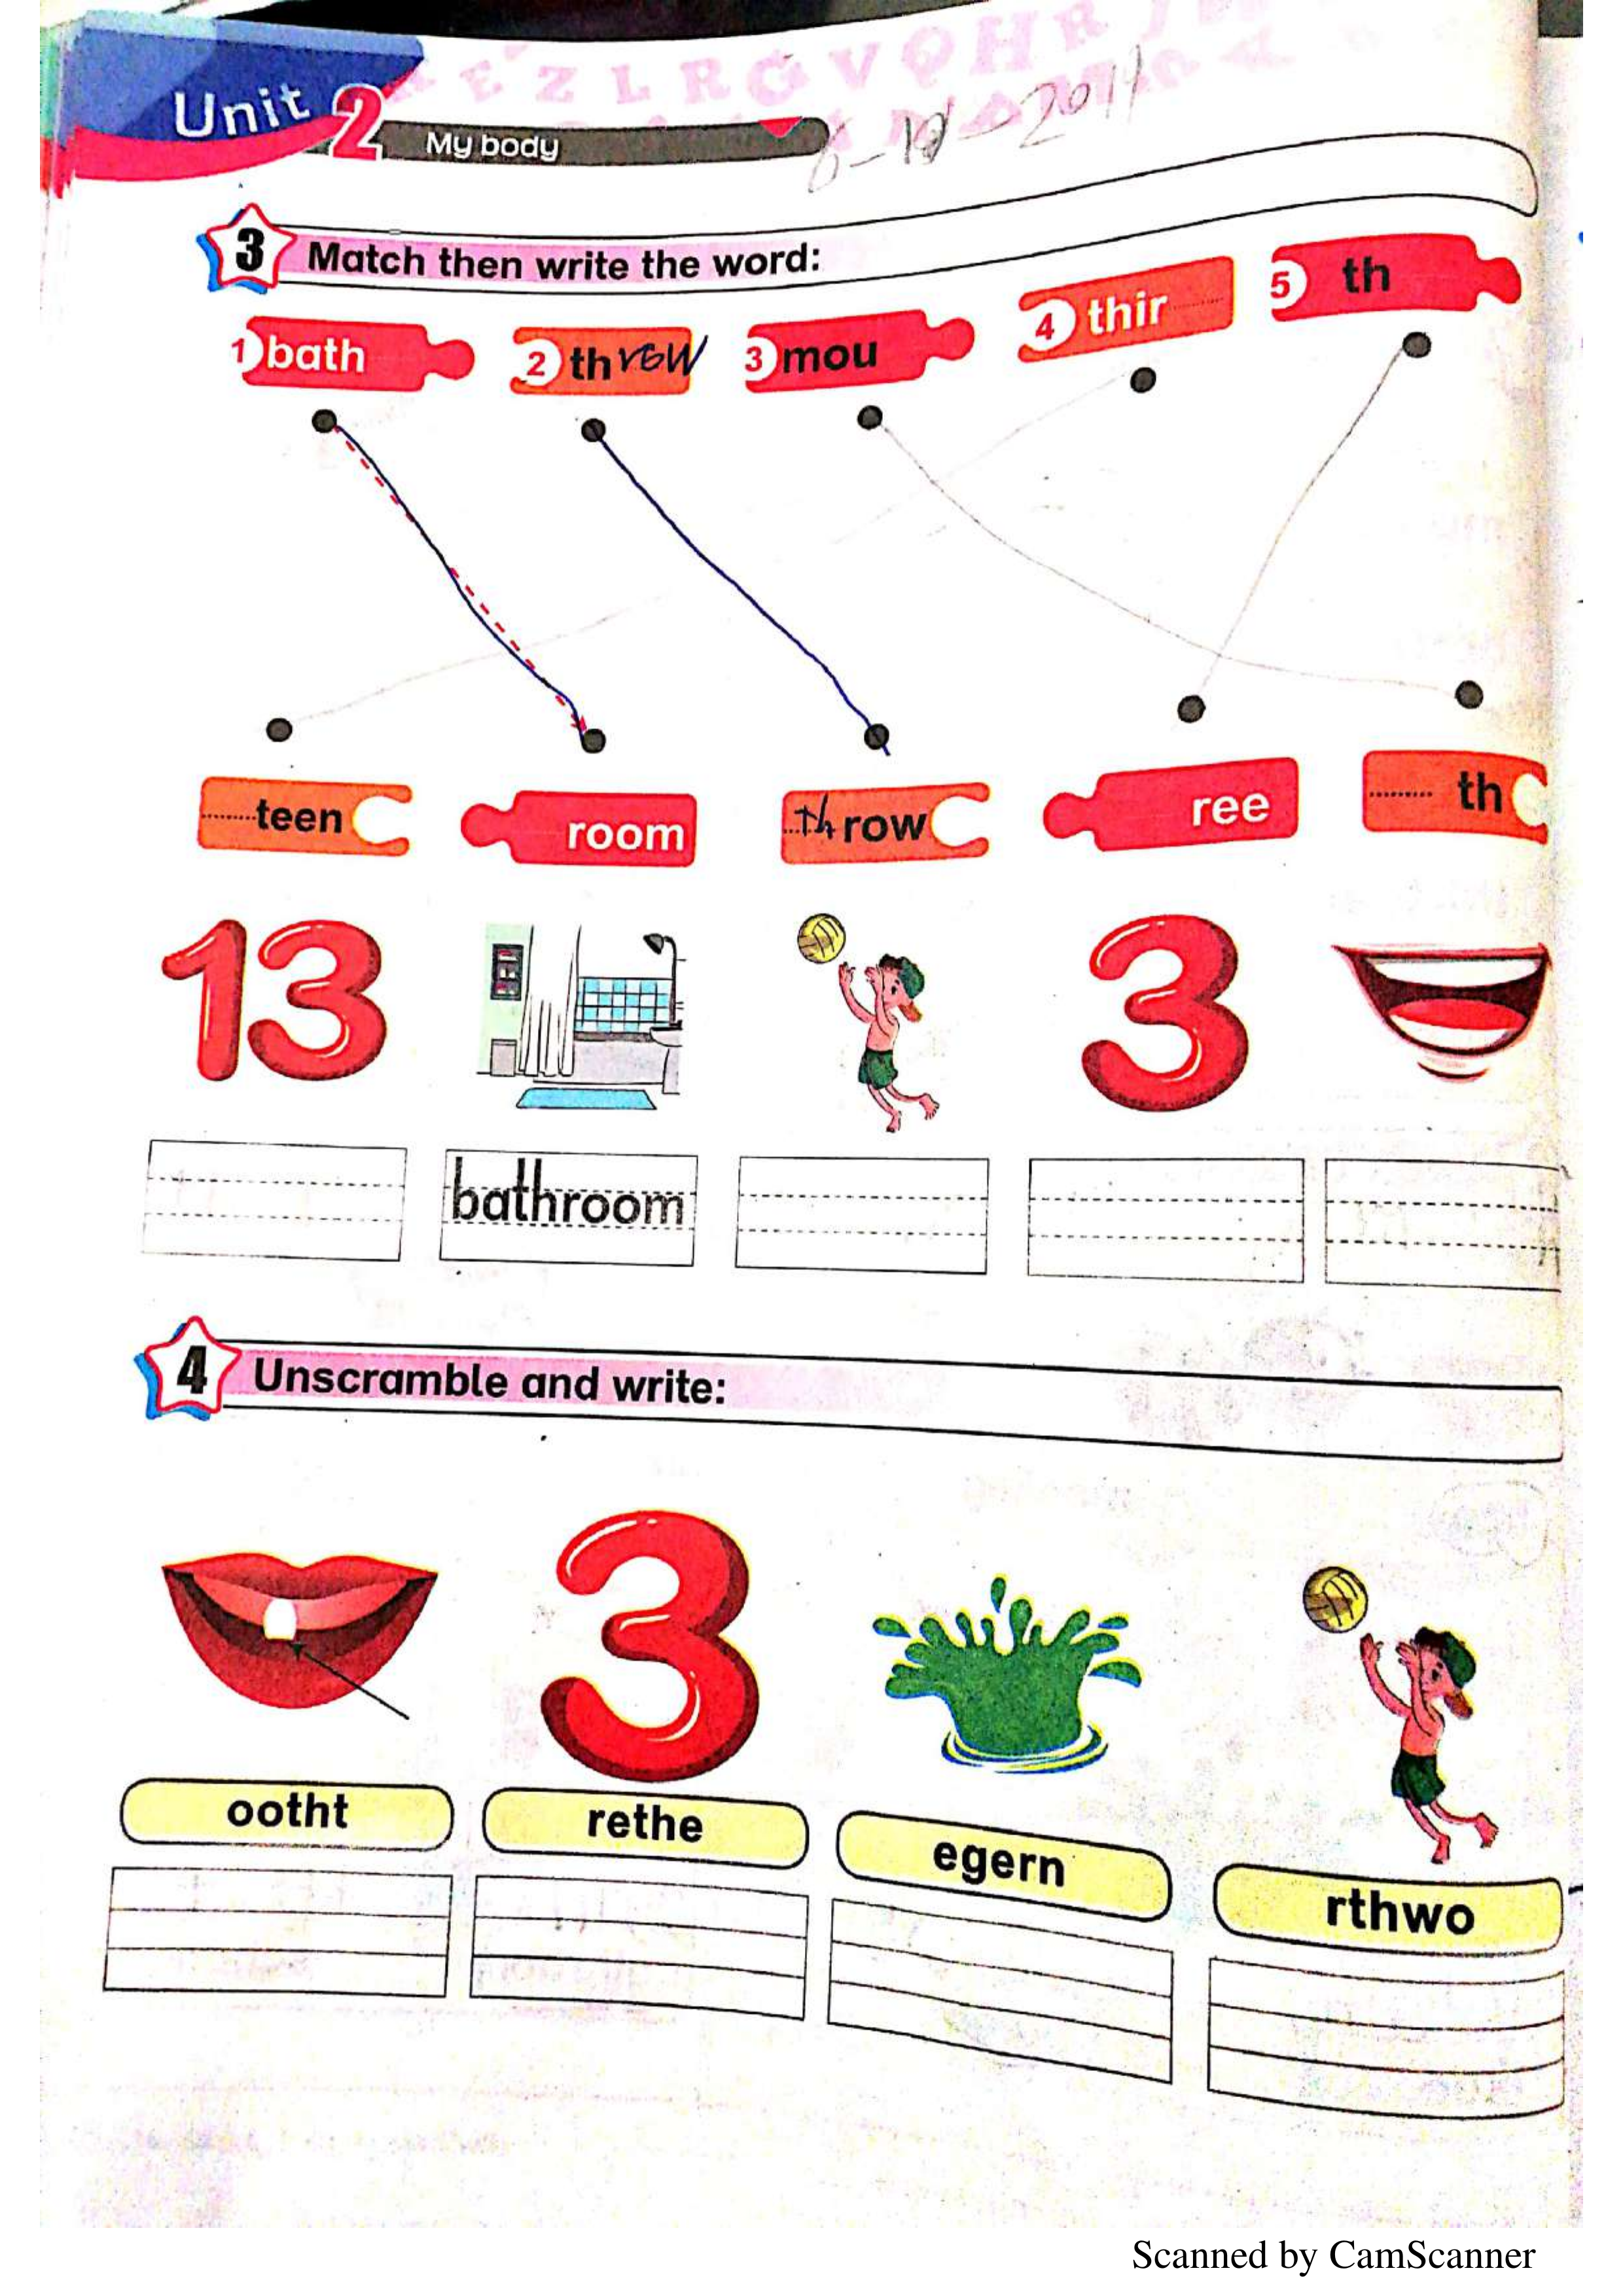 Unit 2
My body
3 Match then write the word:
1 bath 2 throw 3 mou 4 thir 5 th
.........teen room ...throw ree ......... th
13 3
bathroom
4 Unscramble and write:
3
ootht rethe egern rthwo
Scanned by CamScanner